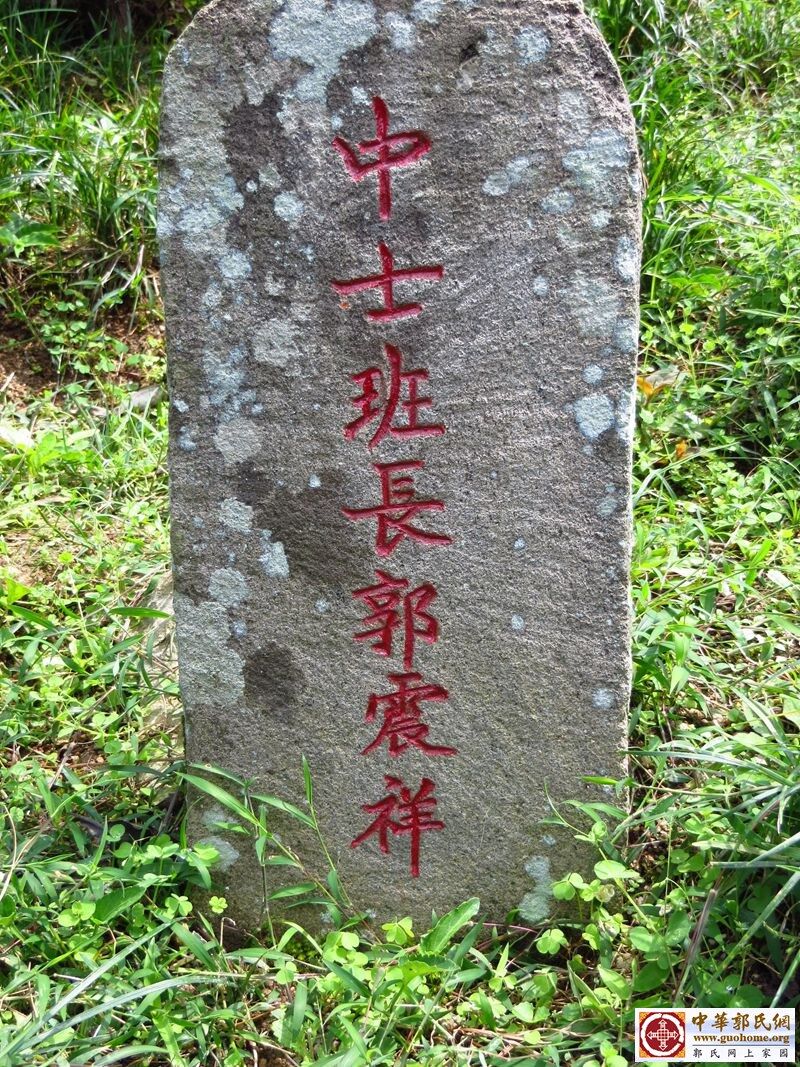 中士班長郭震祥
中華郭氏網
www.guohome.org
郭氏网上家园